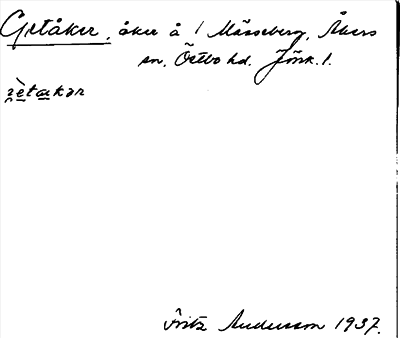 Getåker, åker å 1 Måsseberg, Åkers
sn, Östbo hd. Jönk. l.
Fritz Andersson 1937.